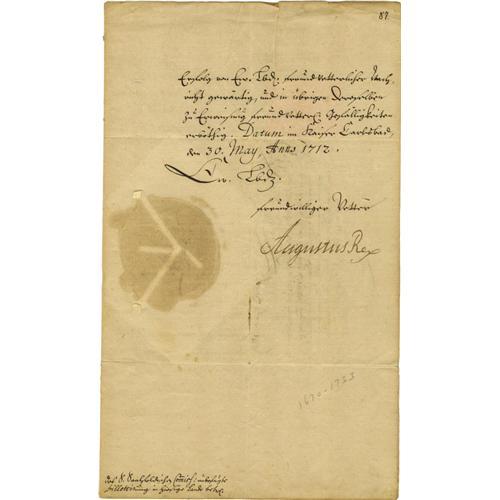 87.
Erfolg von Ew. Lbd: freundvetterlicher Nach-
richt gewärtig, und in übrigen deroselben
zu Erweisung freundvetterl: Gefälligkeiten
erböthig. Datum im Kaiser Carlsbad,
den 30. May, Anno 1712.
Ew. Lbd:
freundwilliger Vetter
Augustus Rex
1670-1733
das S. Saalfeldische
in